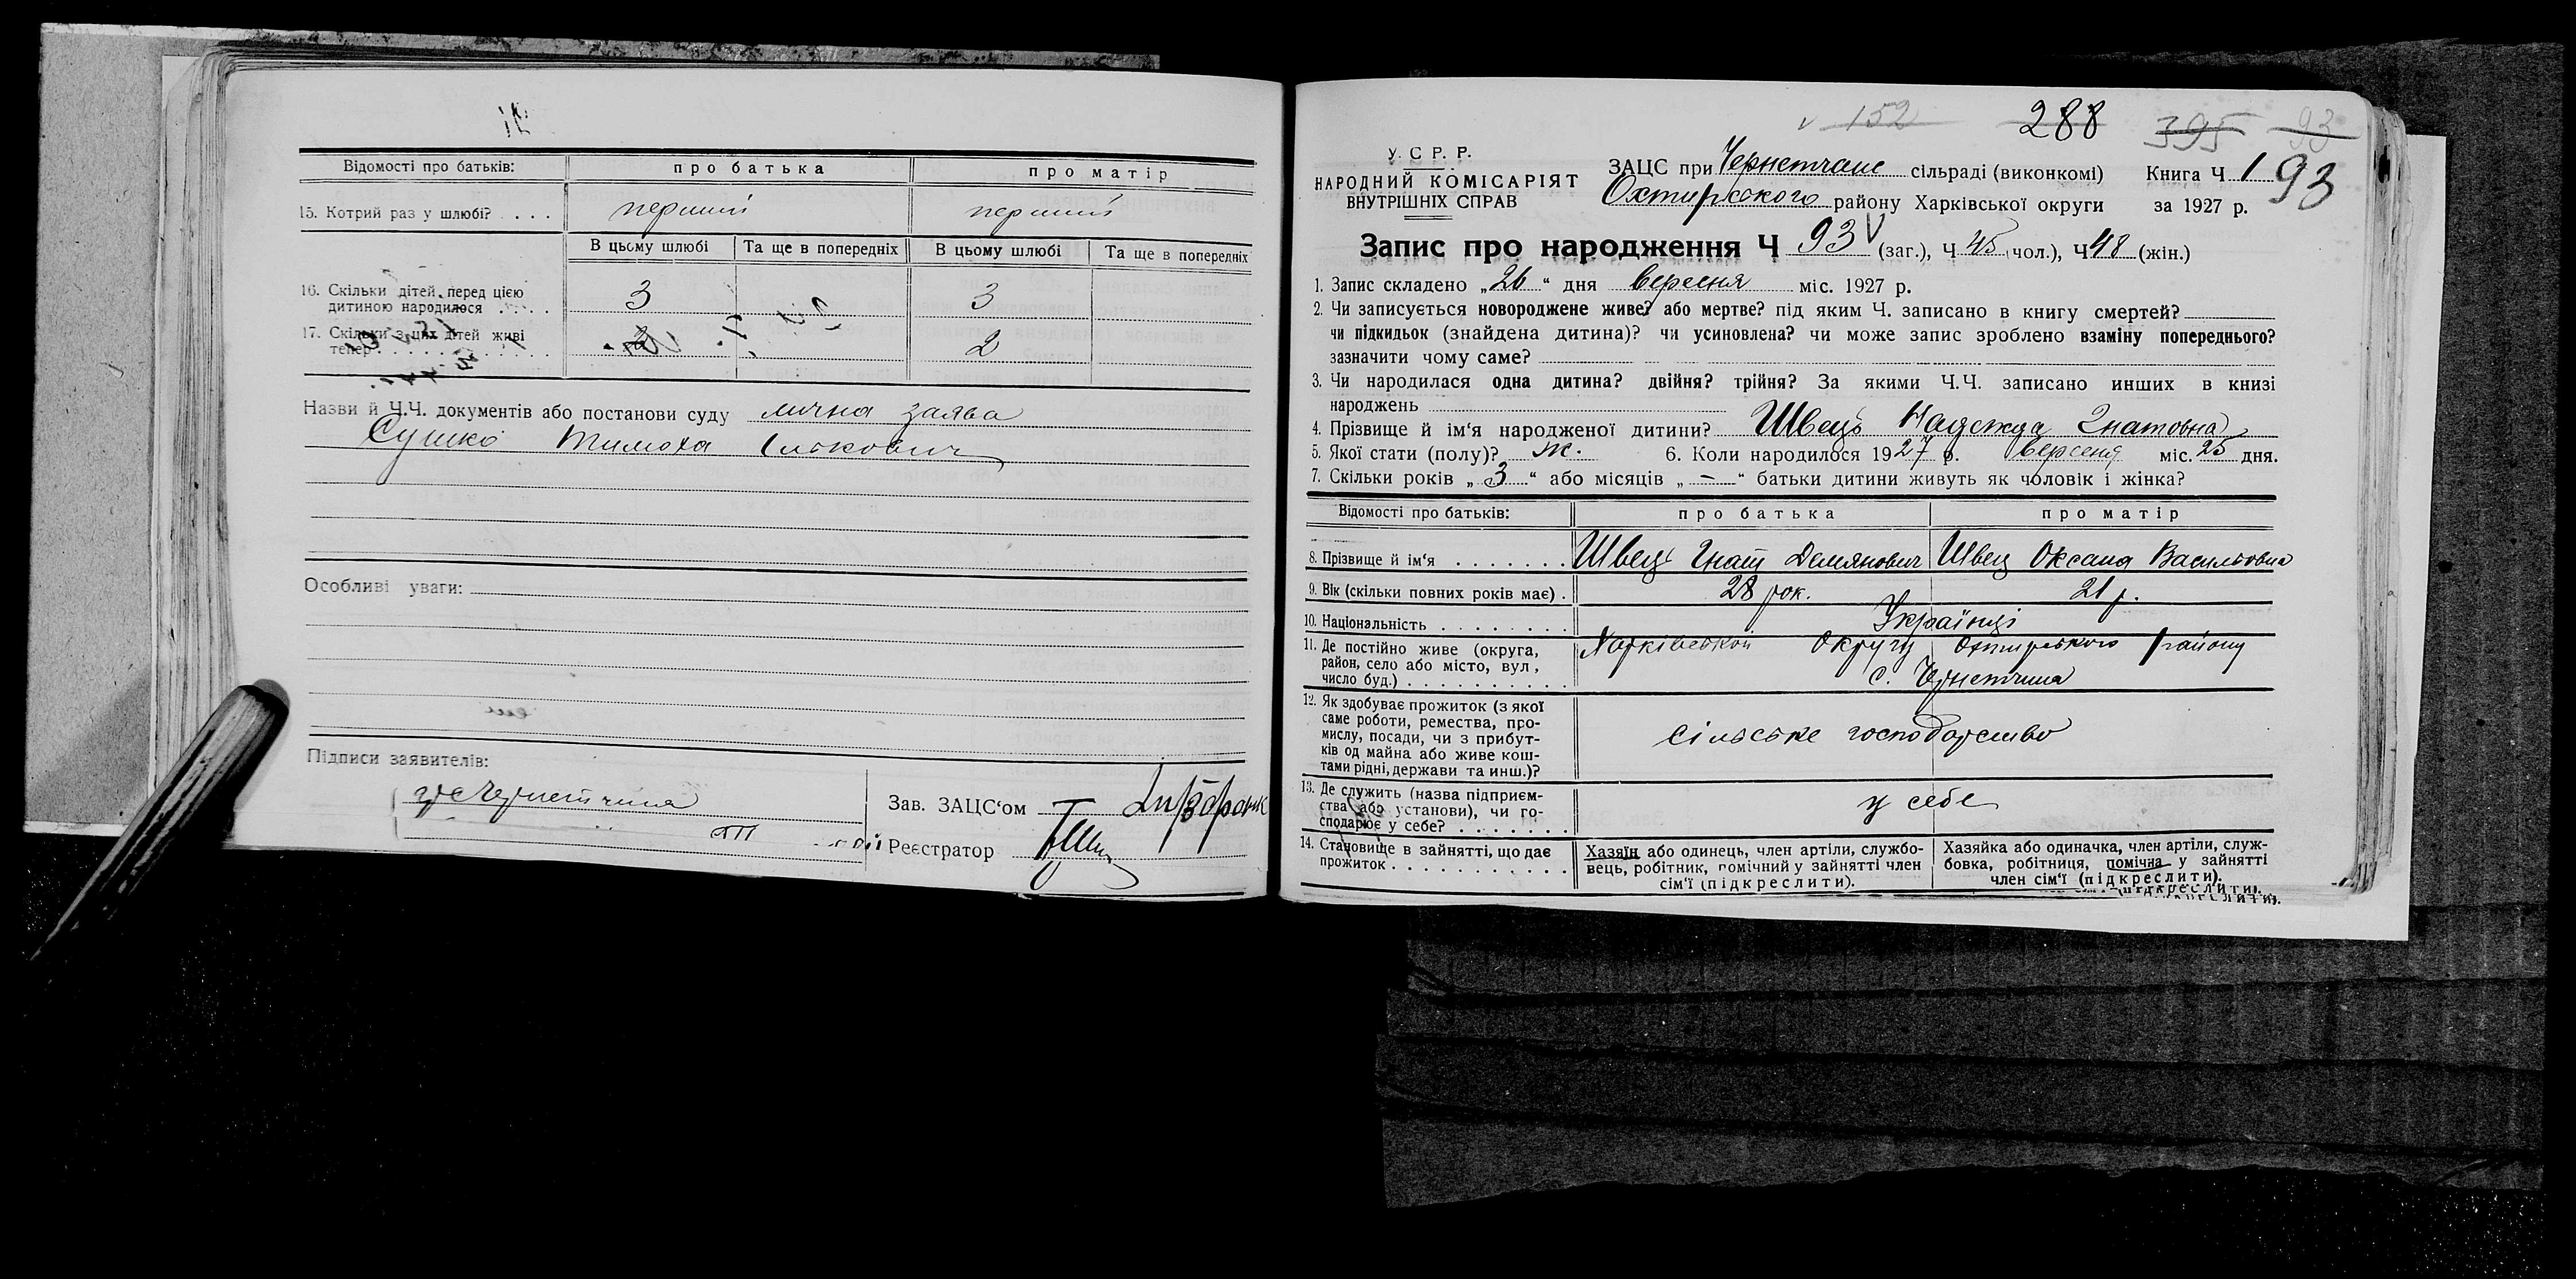 Відомості про батьків: про батька про матір
15. Котрий раз у шлюбі? . . . . перший перший
В цьому шлюбі Та ще в попередніх В цьому шлюбі Та ще в попередніх
16. Скільки дітей перед цією
дитиною народилося . . . . 3 3
17. Скільки з цих дітей живі
тепер . . . . . . . . . . . . 2 2
Назви й Ч.Ч. документів або постанови суду лична заява
Сушко Тимоха Ількович
Особливі уваги:
Підписи заявителів:
Зав. ЗАЦС'ом
Реєстратор
152 288 395 93
У. С. Р. Р.
НАРОДНИЙ КОМІСАРІЯТ
ВНУТРІШНІХ СПРАВ
ЗАЦС при Чернетчане сільраді (виконкомі) Книга Ч 1 93
Охтирського району Харківської округи за 1927 р.
Запис про народження Ч 93 V (заг.), Ч 45 (чол.), Ч 48 (жін.)
1. Запис складено „26“ дня вересня міс. 1927 р.
2. Чи записується новороджене живе? або мертве? під яким Ч. записано в книгу смертей?
чи підкидьок (знайдена дитина)? чи усиновлена? чи може запис зроблено взаміну попереднього?
зазначити чому саме?
3. Чи народилася одна дитина? двійня? трійня? За якими Ч.Ч. записано инших в книзі
народжень
4. Прізвище й ім'я народженої дитини? Швець Надежда Гнатовна
5. Якої стати (полу)? ж. 6. Коли народилося 1927 р. вересня міс. 25 дня.
7. Скільки років „3“ або місяців „–“ батьки дитини живуть як чоловік і жінка?
Відомості про батьків: про батька про матір
8. Прізвище й ім'я . . . . . . . Швець Гнат Демянович Швец Оксана Васильовна
9. Вік (скільки повних років має) . 28 рок. 21 р.
10. Національність . . . . . . . . Українці
11. Де постійно живе (округа, Харківськой Округи Охтирського району
район, село або місто, вул.,
число буд.) . . . . . . . . . . с. Чернетчина
12. Як здобуває прожиток (з якої
саме роботи, ремества, про-
мислу, посади, чи з прибут-
ків од майна або живе кош-
тами рідні, держави та инш.)? сільське господарство
13. Де служить (назва підприєм-
ства або установи), чи го-
сподарює у себе? . . . . . . . у себе
14. Становище в зайнятті, що дає
прожиток . . . . . . . . . . .
Хазяїн або одинець, член артіли, службо-
вець, робітник, помічний у зайнятті член
сім'ї (підкреслити).
Хазяйка або одиначка, член артіли, служ-
бовка, робітниця, помічна у зайнятті
член сім'ї (підкреслити).